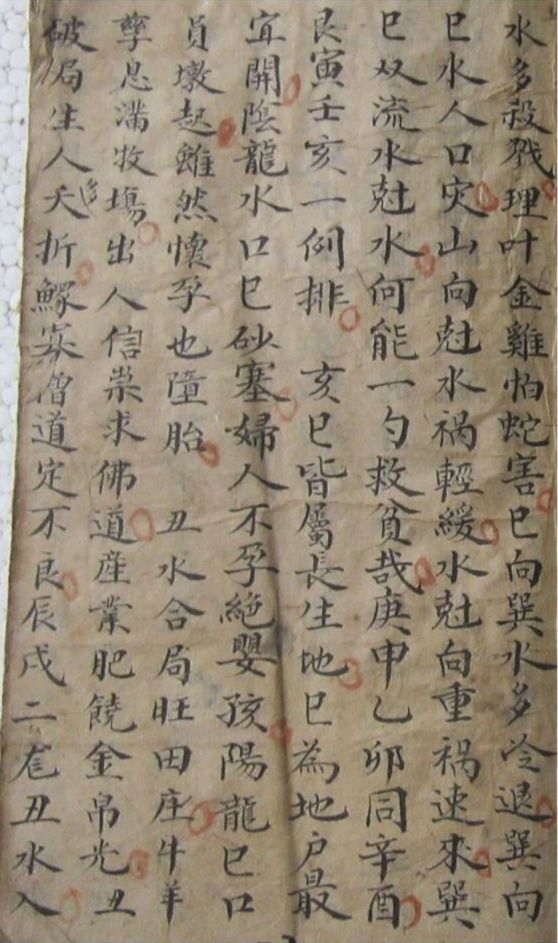 水多殺戮理叶金雞怕蛇害巳向巽水多冷退巽向
巳水人口灾山向尅水禍輕緩水尅向重禍速來巽
巳双流水尅水何能一勺救貧哉庚申乙卯同辛酉
艮寅壬亥一例排 亥巳皆屬長生地巳為地户最
宜開陰龍水口巳砂塞婦人不孕絶嬰孩陽龍巳口
員墩起雖然懷孕也墮胎 丑水合局旺田庄牛羊
孳息滿牧塲出人信崇求佛道産業肥饒金帛光丑
破局生人多夭折鰥寡僧道定不良辰戌二
丑水入